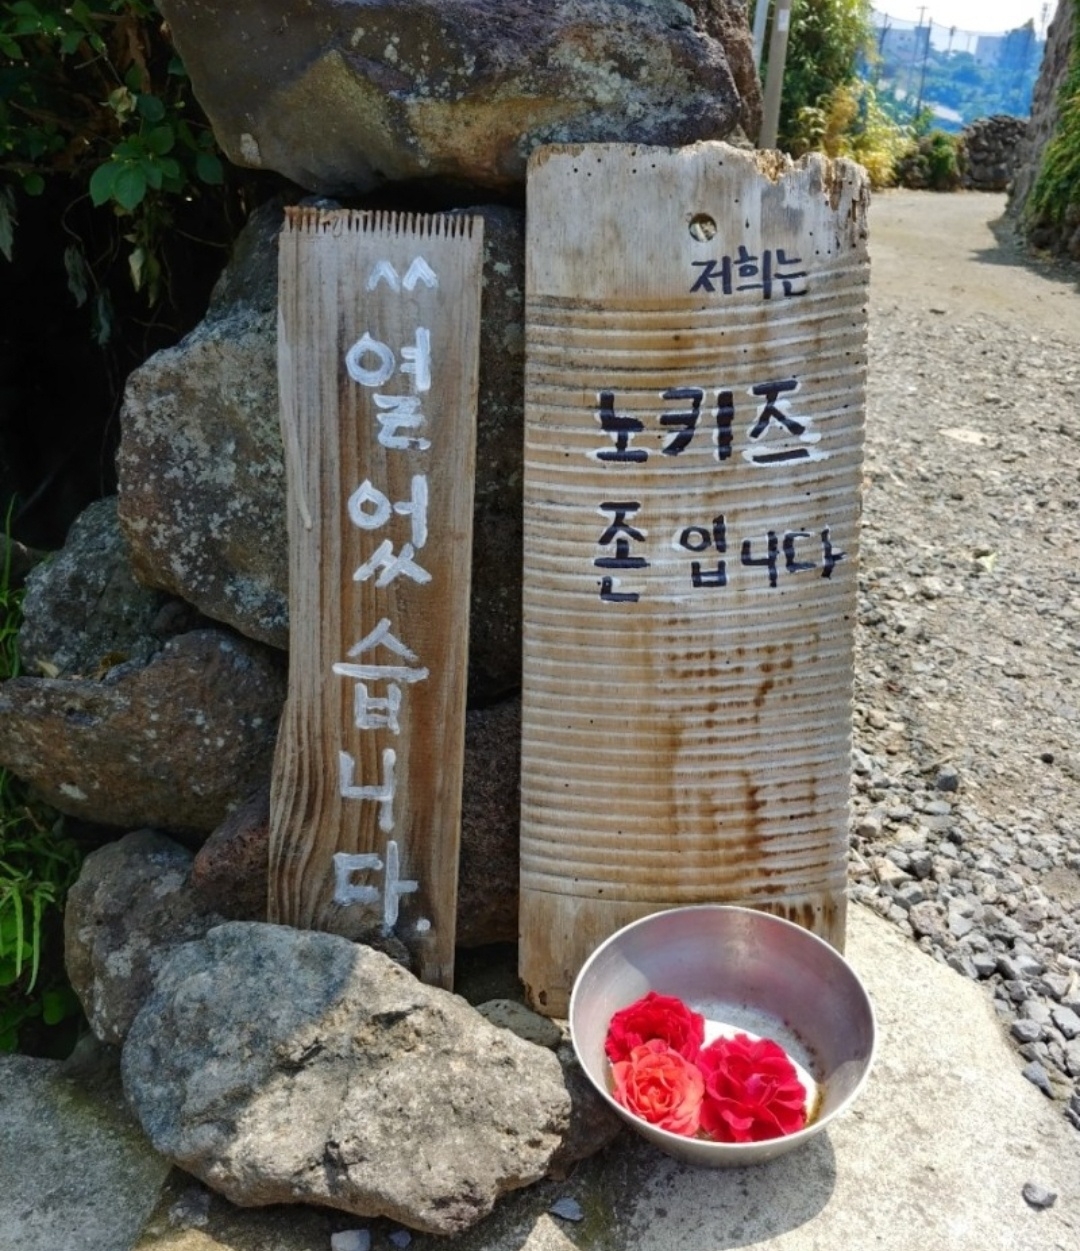 ^^
열
었
습
니
다.
저희는
노키즈
존 입니다